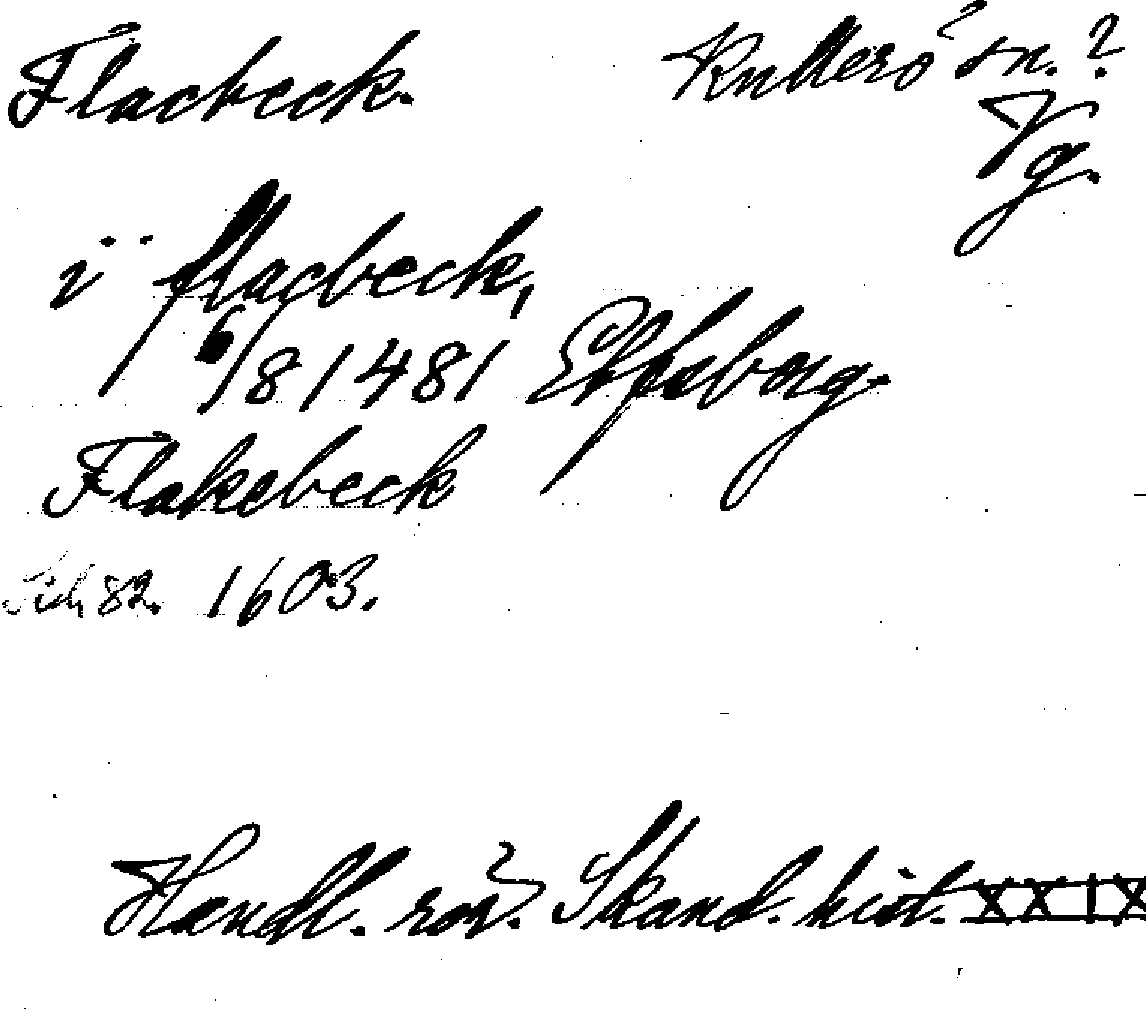 Flacbeck. Kullerö sn.?
Vg.
i flacbeck,
6/8 1481 Elfsborg.
Flakebeck
Sid, 82. 1603.
Handl. rör. Skand. hist. XXIX